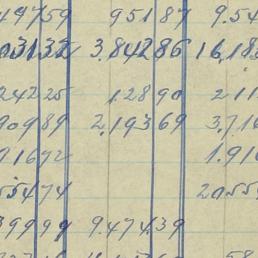 49759 95187 9.54
03132 3.84286 16.188
24225 12890 211
90989 2.19369 3.716
91672 1.916
55474 20.559
39999 9.47439